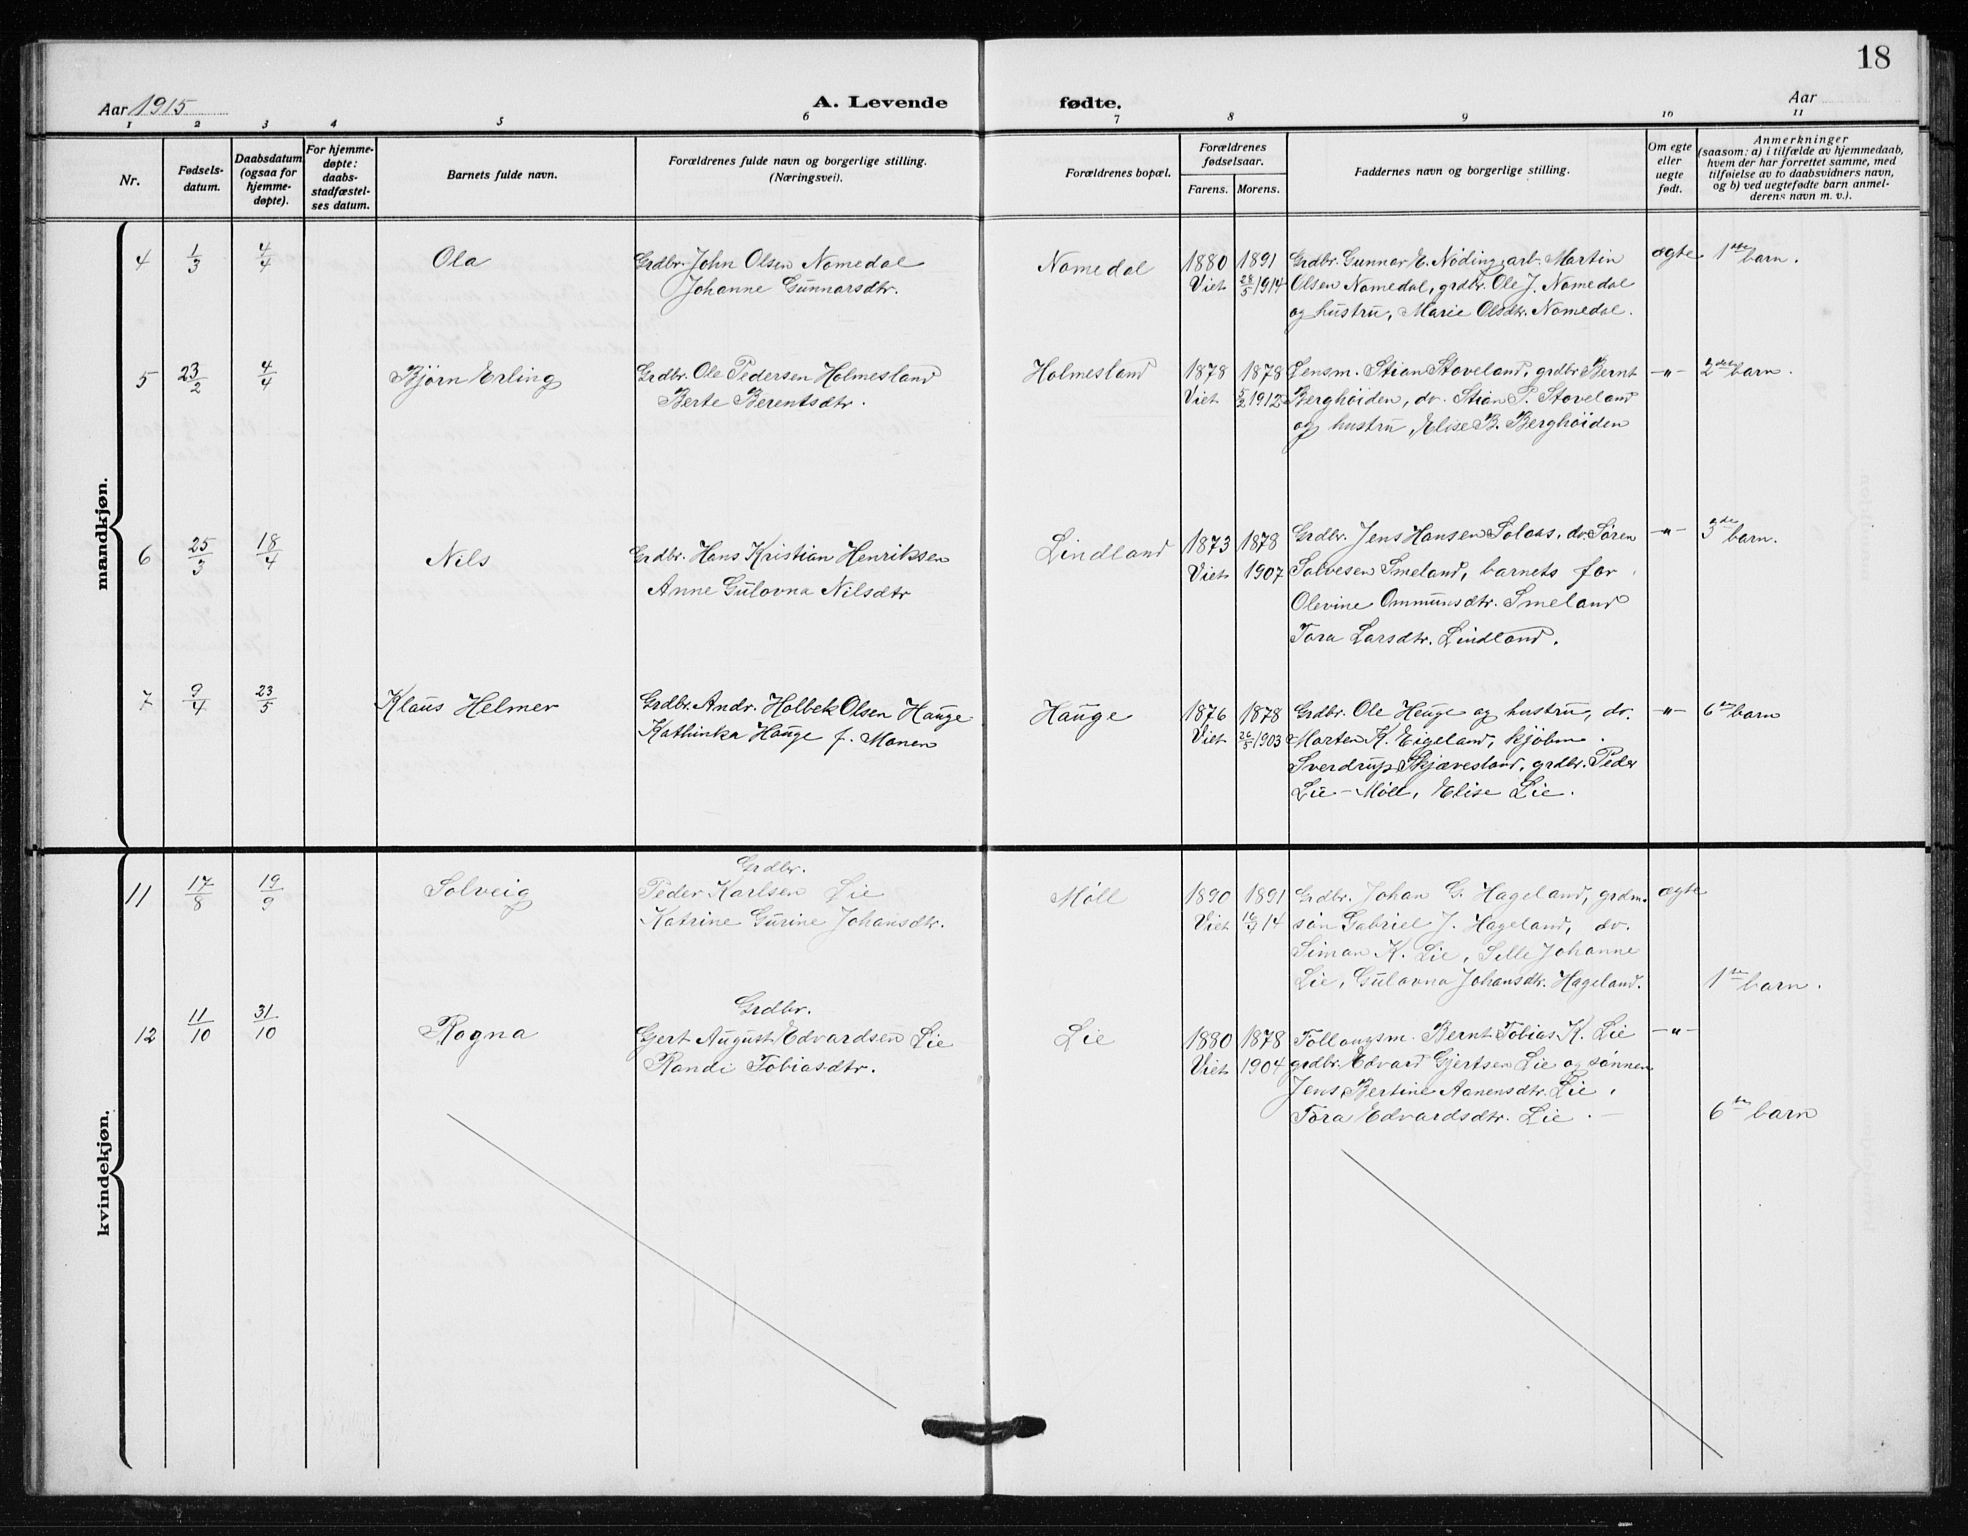 18
Aar 1915 A. Levende fødte. Aar
1 2 3 4 5 6 7 8 9 10 11
Nr. Fødsels-datum. Daabsdatum (ogsaa for hjemme-døpte). For hjemme-døpte: daabs-stadfæstel-ses datum. Barnets fulde navn. Forældrenes fulde navn og borgerlige stilling. (Næringsvei). Forældrenes bopæl. Forældrenes fødselsaar. Farens. Morens. Faddernes navn og borgerlige stilling. Om egte eller uegte født. Anmerkninger (saasom: a) i tilfælde av hjemmedaab, hvem der har forrettet samme, med tilføielse av to daabsvidners navn, og b) ved uegtefødte barn anmel-derens navn m. v.).
mandkjøn.
4 1/3 4/4 Ola Grdbr. John Olsen Nomedal Nomedal 1880 1891 Grdbr. Gunnar E. Nøding, arb. Martin ægte 1ste barn.
Johanne Gunnarsdtr. Viet 28/5 1914 Olsen Nomedal, grdbr. Ole J. Nomedal
og hustru, Marie Olsdtr. Nomedal.
5 23/2 4/4 Bjørn Erling Grdbr. Ole Pedersen Holmesland Holmesland 1878 1878 Lensm. Stian Stoveland, grdbr. Bernt -"- 2det barn.
Berte Berentsdtr. Viet 5/2 1912 Berghøiden, do. Stian P. Stoveland
og hustru, Elise B. Berghöiden
6 25/3 18/4 Nils Grdbr. Hans Kristian Henriksen Lindland 1873 1878 Grdbr. Jens Hansen Solaas, do. Søren -"- 3die barn.
Anne Gulovna Nilsdtr Viet 1907 Salvesen Smeland, barnets far
Olevine Ommunsdtr. Smeland
Tora Larsdtr. Lindland.
7 9/4 23/5 Klaus Helmer Grdbr. Andr. Holbek Olsen Hauge Hauge 1876 1878 Grdbr. Ole Heuge og hustru, do. -"- 6te barn
Kathinka Hauge f. Monen Viet 26/5 1903 Morten K. Eigeland, kjøbm.
Sverdrup Skjævesland, grdbr. Peder
Lie - Möll, Elise Lie.
kvindekjøn.
11 17/8 19/9 Solveig Grdbr.
Peder Karlsen Lie Möll 1890 1891 Grdbr. Johan G. Hageland, grdm. ægte
Katrine Gurine Johansdtr. Viet 14 søn Gabriel J. Hageland, do.
Simon K. Lie, Sille Johanne
Lie, Gulovna Johansdtr. Hageland. 1ste barn.
12 11/10 31/10 Rogna Grdbr.
Gert August Edvardsen Lie Lie 1880 1878 Tollougsm. Bernt Tobias K. Lie -"-
Randi Tobiasdtr. Viet 1904 grdbr. Edvard Gjertsen Lie og sønnen
Jens, Bertine Aanensdtr. Lie,
Tora Edvardsdtr. Lie. - 6te barn